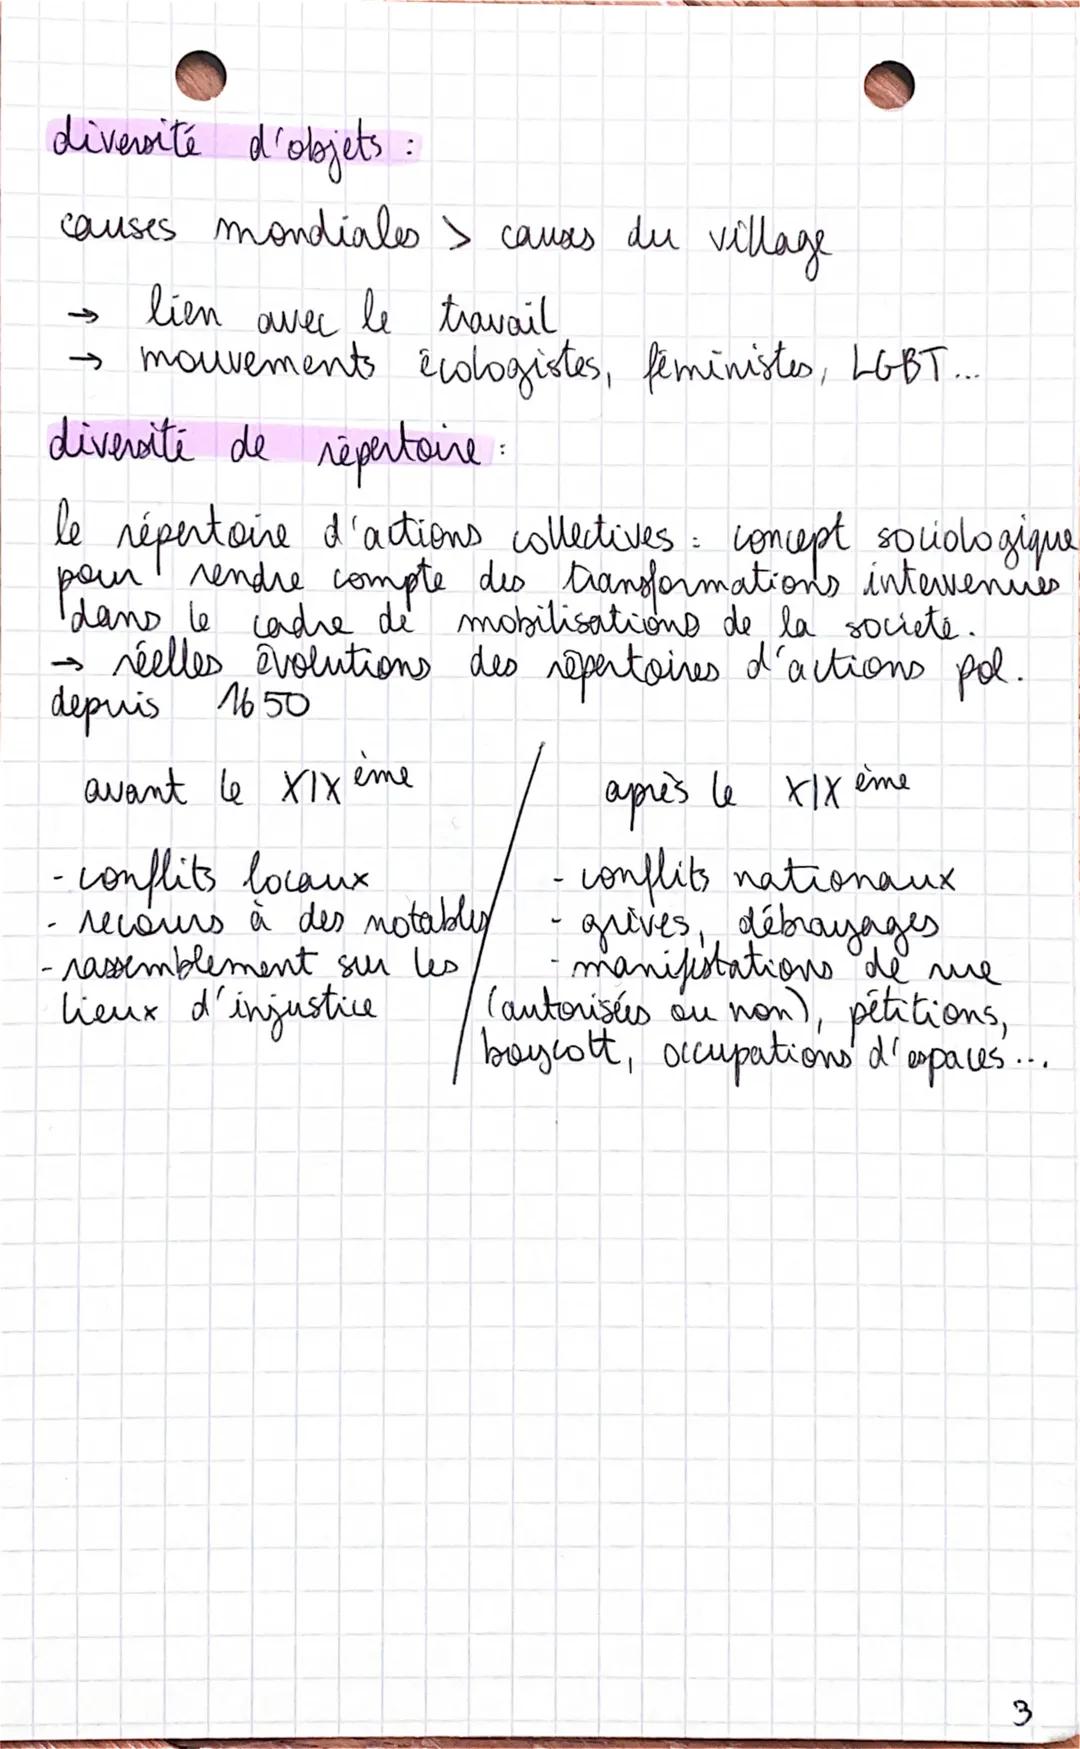 diversité d'objets :
causes mondiales > causes du village
→ lien avec le travail
→ mouvements écologistes, féministes, LGBT...
diversité de répertoire :
le répertoire d'actions collectives : concept sociologique
pour rendre compte des transformations intervenues
dans le cadre de mobilisations de la société.
→ réelles évolutions des répertoires d'actions pol.
depuis 1650
avant le XIXème
- conflits locaux
- recours à des notables
- rassemblement sur les
lieux d'injustice
après le XIXème
- conflits nationaux
- grèves, débrayages
- manifestations de rue
(autorisées ou non), pétitions,
boycott, occupations d'espaces...
3